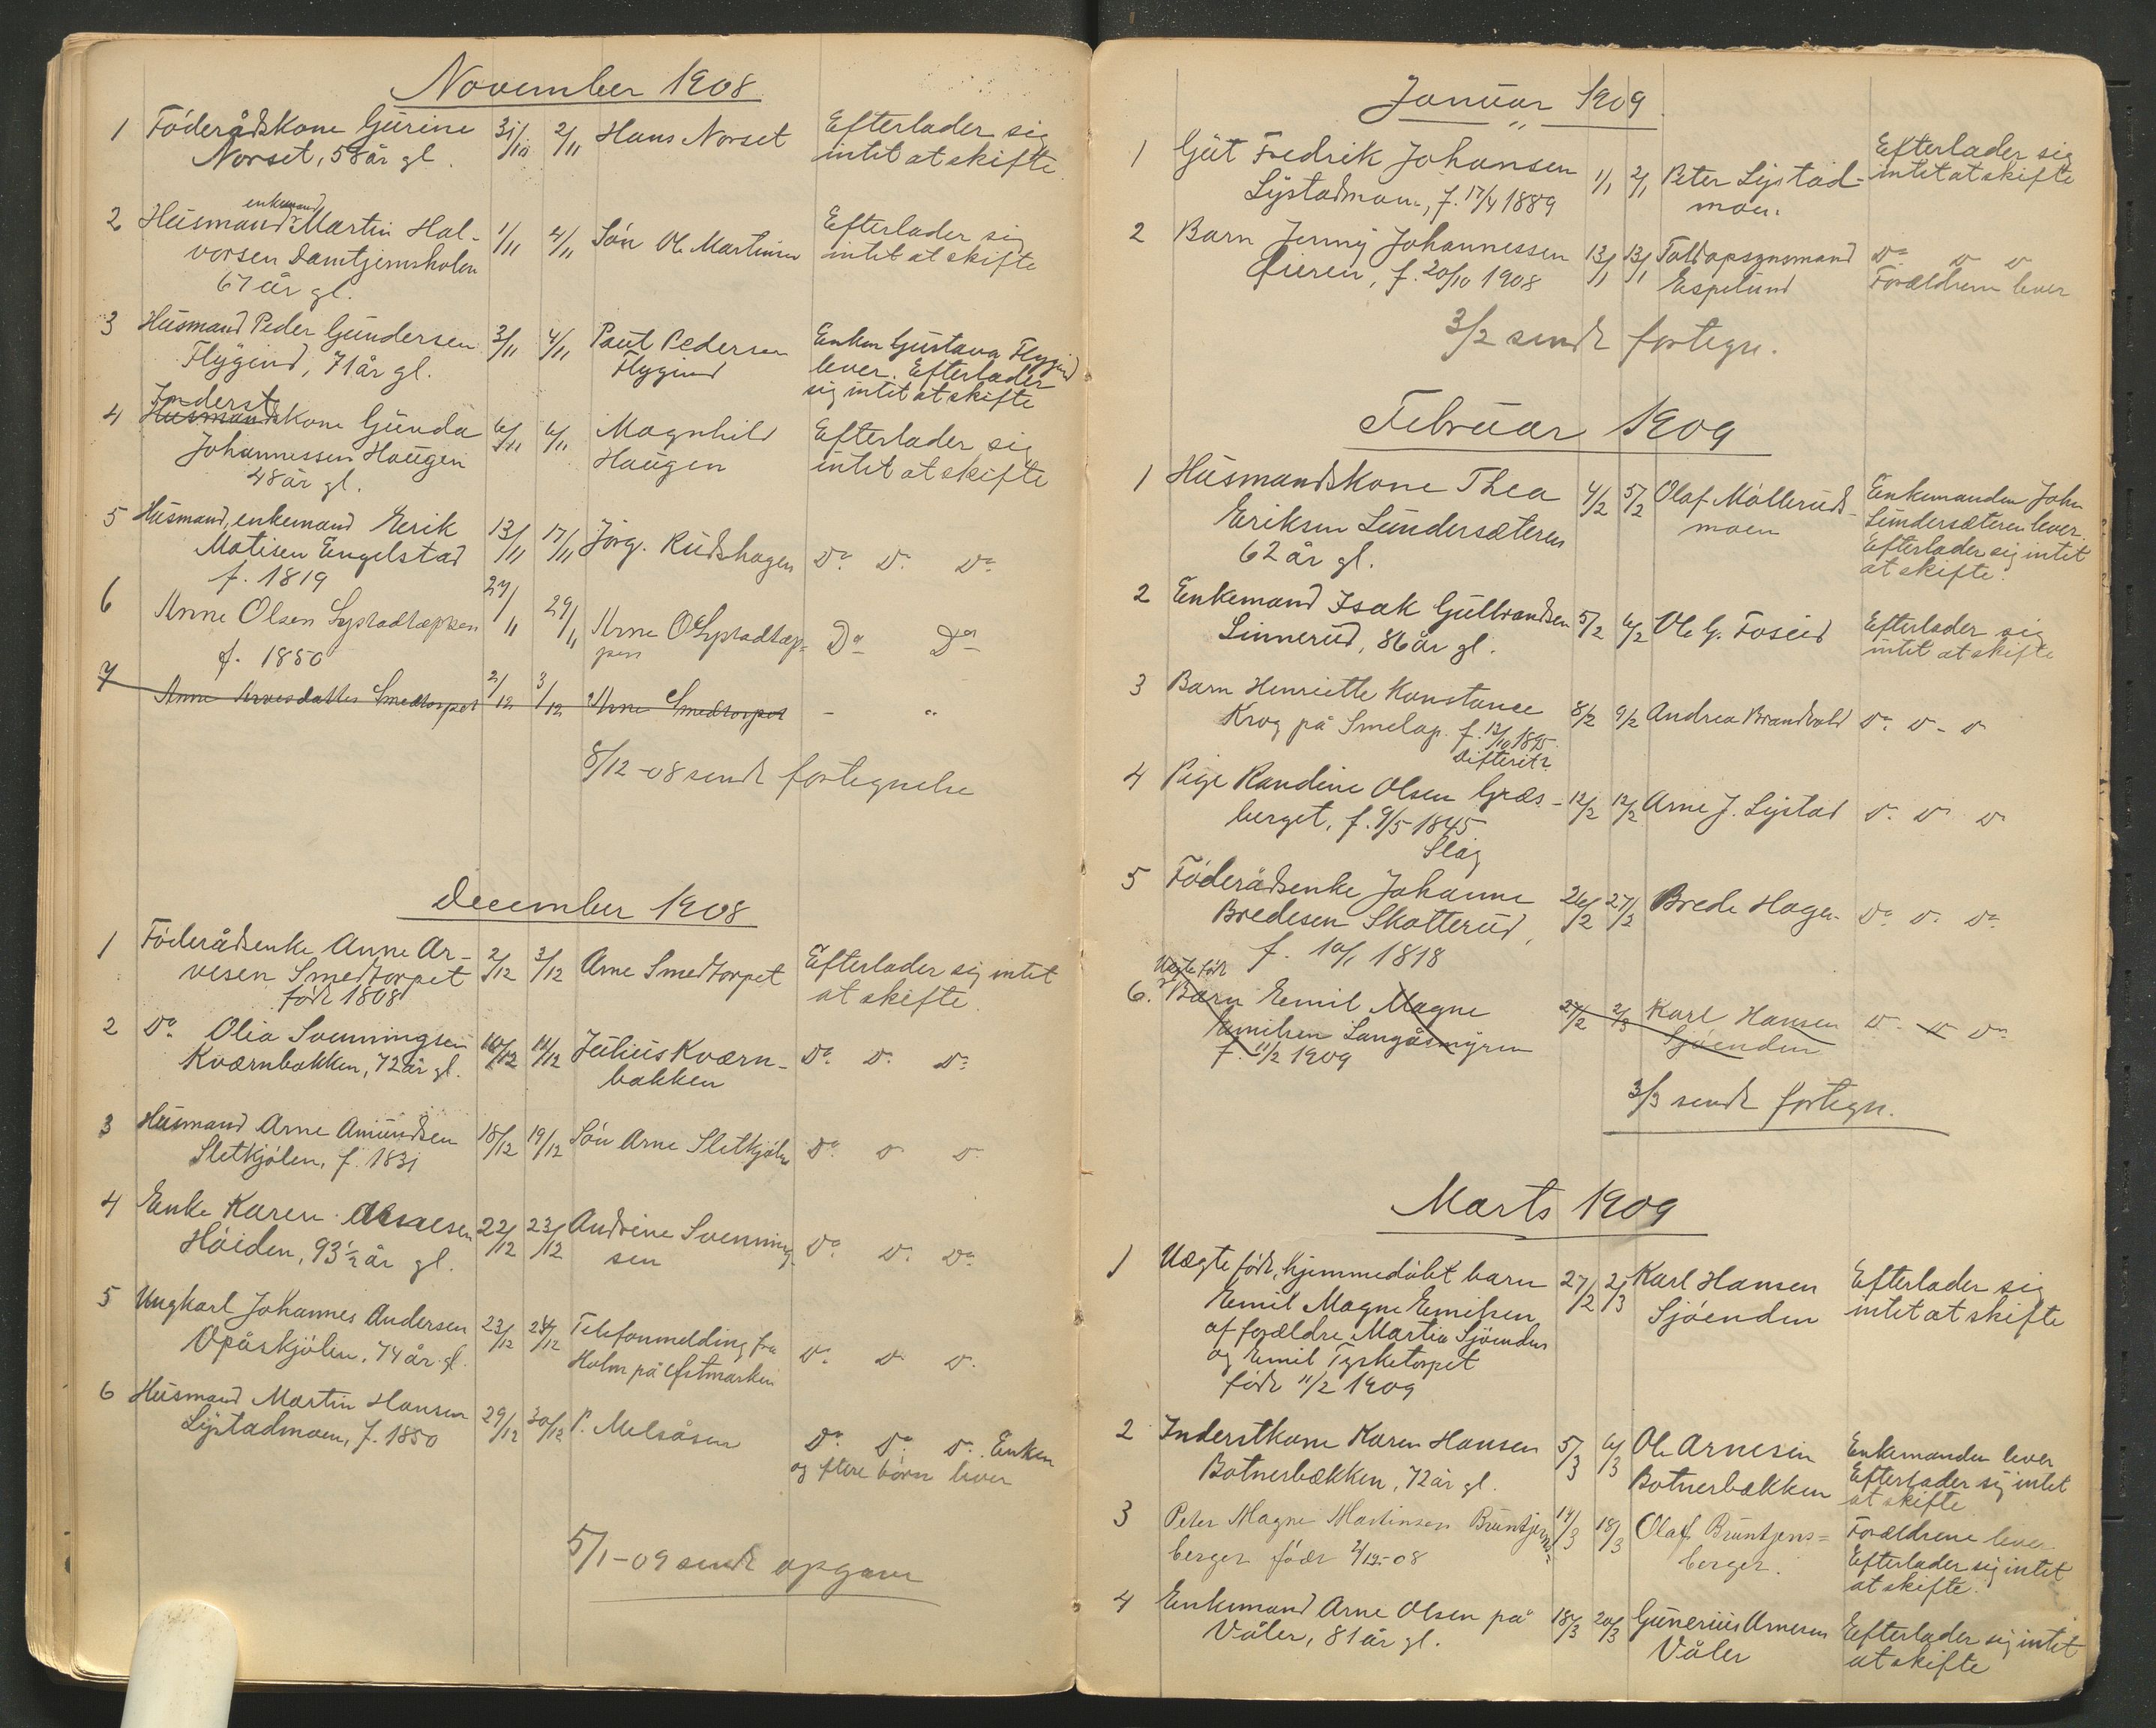 November 1908
1 Föderådskone Gurine 31/10 2/11 Hans Norset Efterlader sig
Norset, 58 år gl. intet at skifte
enkemand
2 Husmand Martin Hal- 1/11 4/11 Sön Ole Martinsen Efterlader sig
vorsen Damtjernsholen intet at skifte
67 år gl.
3 Husmand Peder Gundersen 3/11 4/11 Paul Pedersen Enken Gustava Flygind
Flygind, 71 år gl. Flygind lever. Efterlader
sig intet at skifte
Inderst
4 Husmandskone Gunda 6/11 6/11 Magnhild Efterlader sig
Johannessen Haugen Haugen intet at skifte
48 år gl.
5 Husmand, enkemand Eerik 13/11 17/11 Jörg. Rudshagen Do Do Do
Matisen Engelstad
f. 1819
6 Anne Olsen Lystadtæppen 27/11 29/11 Arne O Lystadtæp- Do Do
f. 1850 pen
7 Anne Arvesdatter Smedtorpet 2/12 3/12 Arne Smedtorpet - "
8/12-08 sendt fortegnelse
December 1908
1 Föderådsenke Anne Ar- 2/12 3/12 Arne Smedtorpet Efterlader sig intet
vesen Smedtorpet at skifte
född 1808
2 Do Olia Svenningsen 10/12 14/12 Julius Kværn- Do Do Do
Kværnbakken, 72 år gl. bakken
3 Husmand Arne Amundsen 18/12 19/12 Sön Arne Sletkjölen Do Do Do
Sletkjölen, f. 1831
4 Enke Karen Høiden, 93½ år gl. 22/12 23/12 Andrine Svenning- Do Do Do
sen
5 Ungkarl Johannes Andersen 23/12 24/12 Telefonmelding fra Do Do Do
Opåskjölen, 74 år gl. Holm på Östmarken
6 Husmand Martin Hansen 29/12 30/12 P. Melsåsen Do Do Do. Enken
Lystadmoen, f. 1850 og flere börn lever
5/1-09 sendt opgave
Januar 1909
1 Gut Fredrik Johansen 1/1 2/1 Peter Lystad- Efterlader sig
Lystadmoen, f. 17/4 1889 moen. intet at skifte
2 Barn Jenny Johannessen 13/1 13/1 Toldopsynsmand Do Do Do
Öieren, f. 20/10 1908 Espelund Forældrene lever
3/2 sendt fortegn.
Februar 1909
1 Husmandskone Thea 4/2 5/2 Olaf Möllerud- Enkemanden John
Eriksen Lundersæteren moen Lundersæteren lever.
62 år gl. Efterlader sig intet
at skifte.
2 Enkemand Isak Gulbrandsen 5/2 6/2 Ole G. Foseid Efterlader sig
Linnerud, 86 år gl. intet at skifte
3 Barn Henriette Konstance 8/2 9/2 Andrea Brandvold Do Do Do
Krog på Smelap. f. 12/10 1895.
Difterit
4 Pige Randine Olsen Græs- 12/2 12/2 Arne J. Lystad Do Do Do
berget, f. 9/5 1845
Slag
5 Föderådsenke Johanne 26/2 27/2 Brede Hagen Do Do Do
Bredesen Skotterud,
f. 10/1 1818
Uægte född
6. Barn Emil Magne 27/2 2/3 Karl Hansen Do Do Do
Emilsen Langåsmyren Sjöenden
f. 11/2 1909
3/3 sendt fortegn.
Marts 1909
1 Uægte född, hjemmedöbt barn 27/2 2/3 Karl Hansen Efterlader sig
Emil Magne Emilsen Sjöenden intet at skifte
af forældre Martia Sjöenden
og Emil Tysketorpet
född 11/2 1909
2 Inderstkone Karen Hansen 5/3 6/3 Ole Arnesen Enkemanden lever
Botnerbækken, 72 år gl. Botnerbækken Efterlader sig intet
at skifte
3 Peter Magne Martinsen Bruntjerns- 14/3 18/3 Olaf Bruntjens= Forældrene lever
berget född 4/12-08 berget. Efterlader sig intet
at skifte.
4 Enkemand Arne Olsen på 18/3 20/3 Gunerius Arnesen Efterlader sig intet
Våler, 81 år gl. Våler at skifte